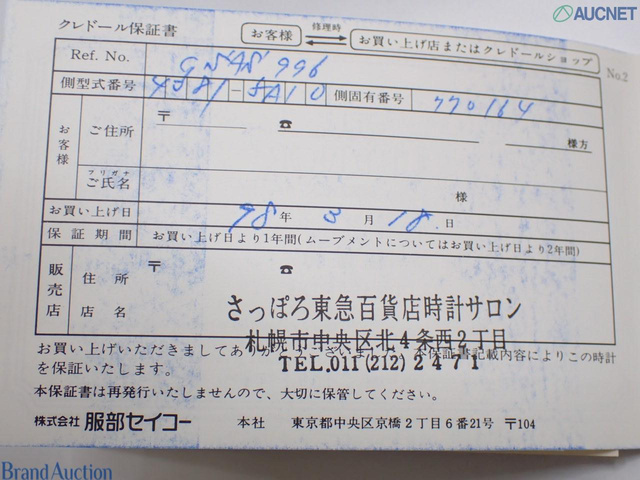 AUCNET
クレドール保証書
お客様
修理時
お買い上げ店またはクレドールショップ
No.2
Ref. No.
996
側型式番号 4S81-5A10 側固有番号 770164
お客様
ご住所 〒 ☎ 様方
フリガナ
ご氏名 様
お買い上げ日 98 年 3 月 18 日
保証期間 お買い上げ日より1年間(ムーブメントについてはお買い上げ日より2年間)
販売店
住所 〒 ☎
店名
さっぽろ東急百貨店時計サロン
札幌市中央区北4条西2丁目
TEL.011(212)2471
お買い上げいただきましてありがとうございました。本保証書記載内容によりこの時計
を保証いたします。
本保証書は再発行いたしませんので、大切に保管してください。
株式会社 服部セイコー 本社 東京都中央区京橋2丁目6番21号 〒104
Brand Auction